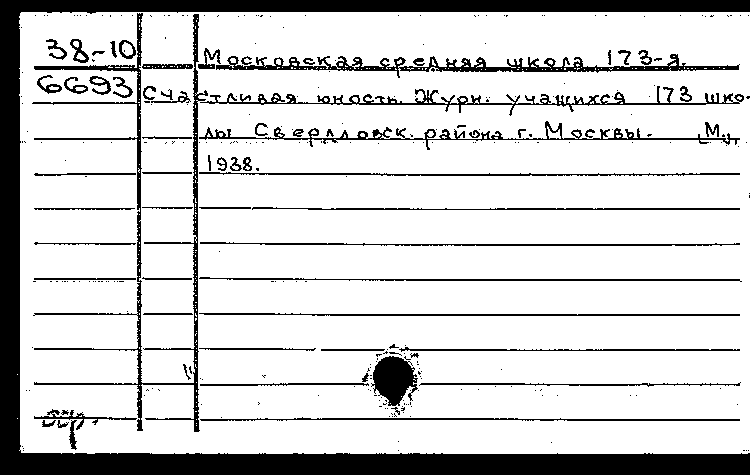 38-10 Московская средняя школа 173-я.
6693 Счастливая юность. Журн. учащихся 173 шко-
лы Свердловск. района г. Москвы. [М.],
1938.